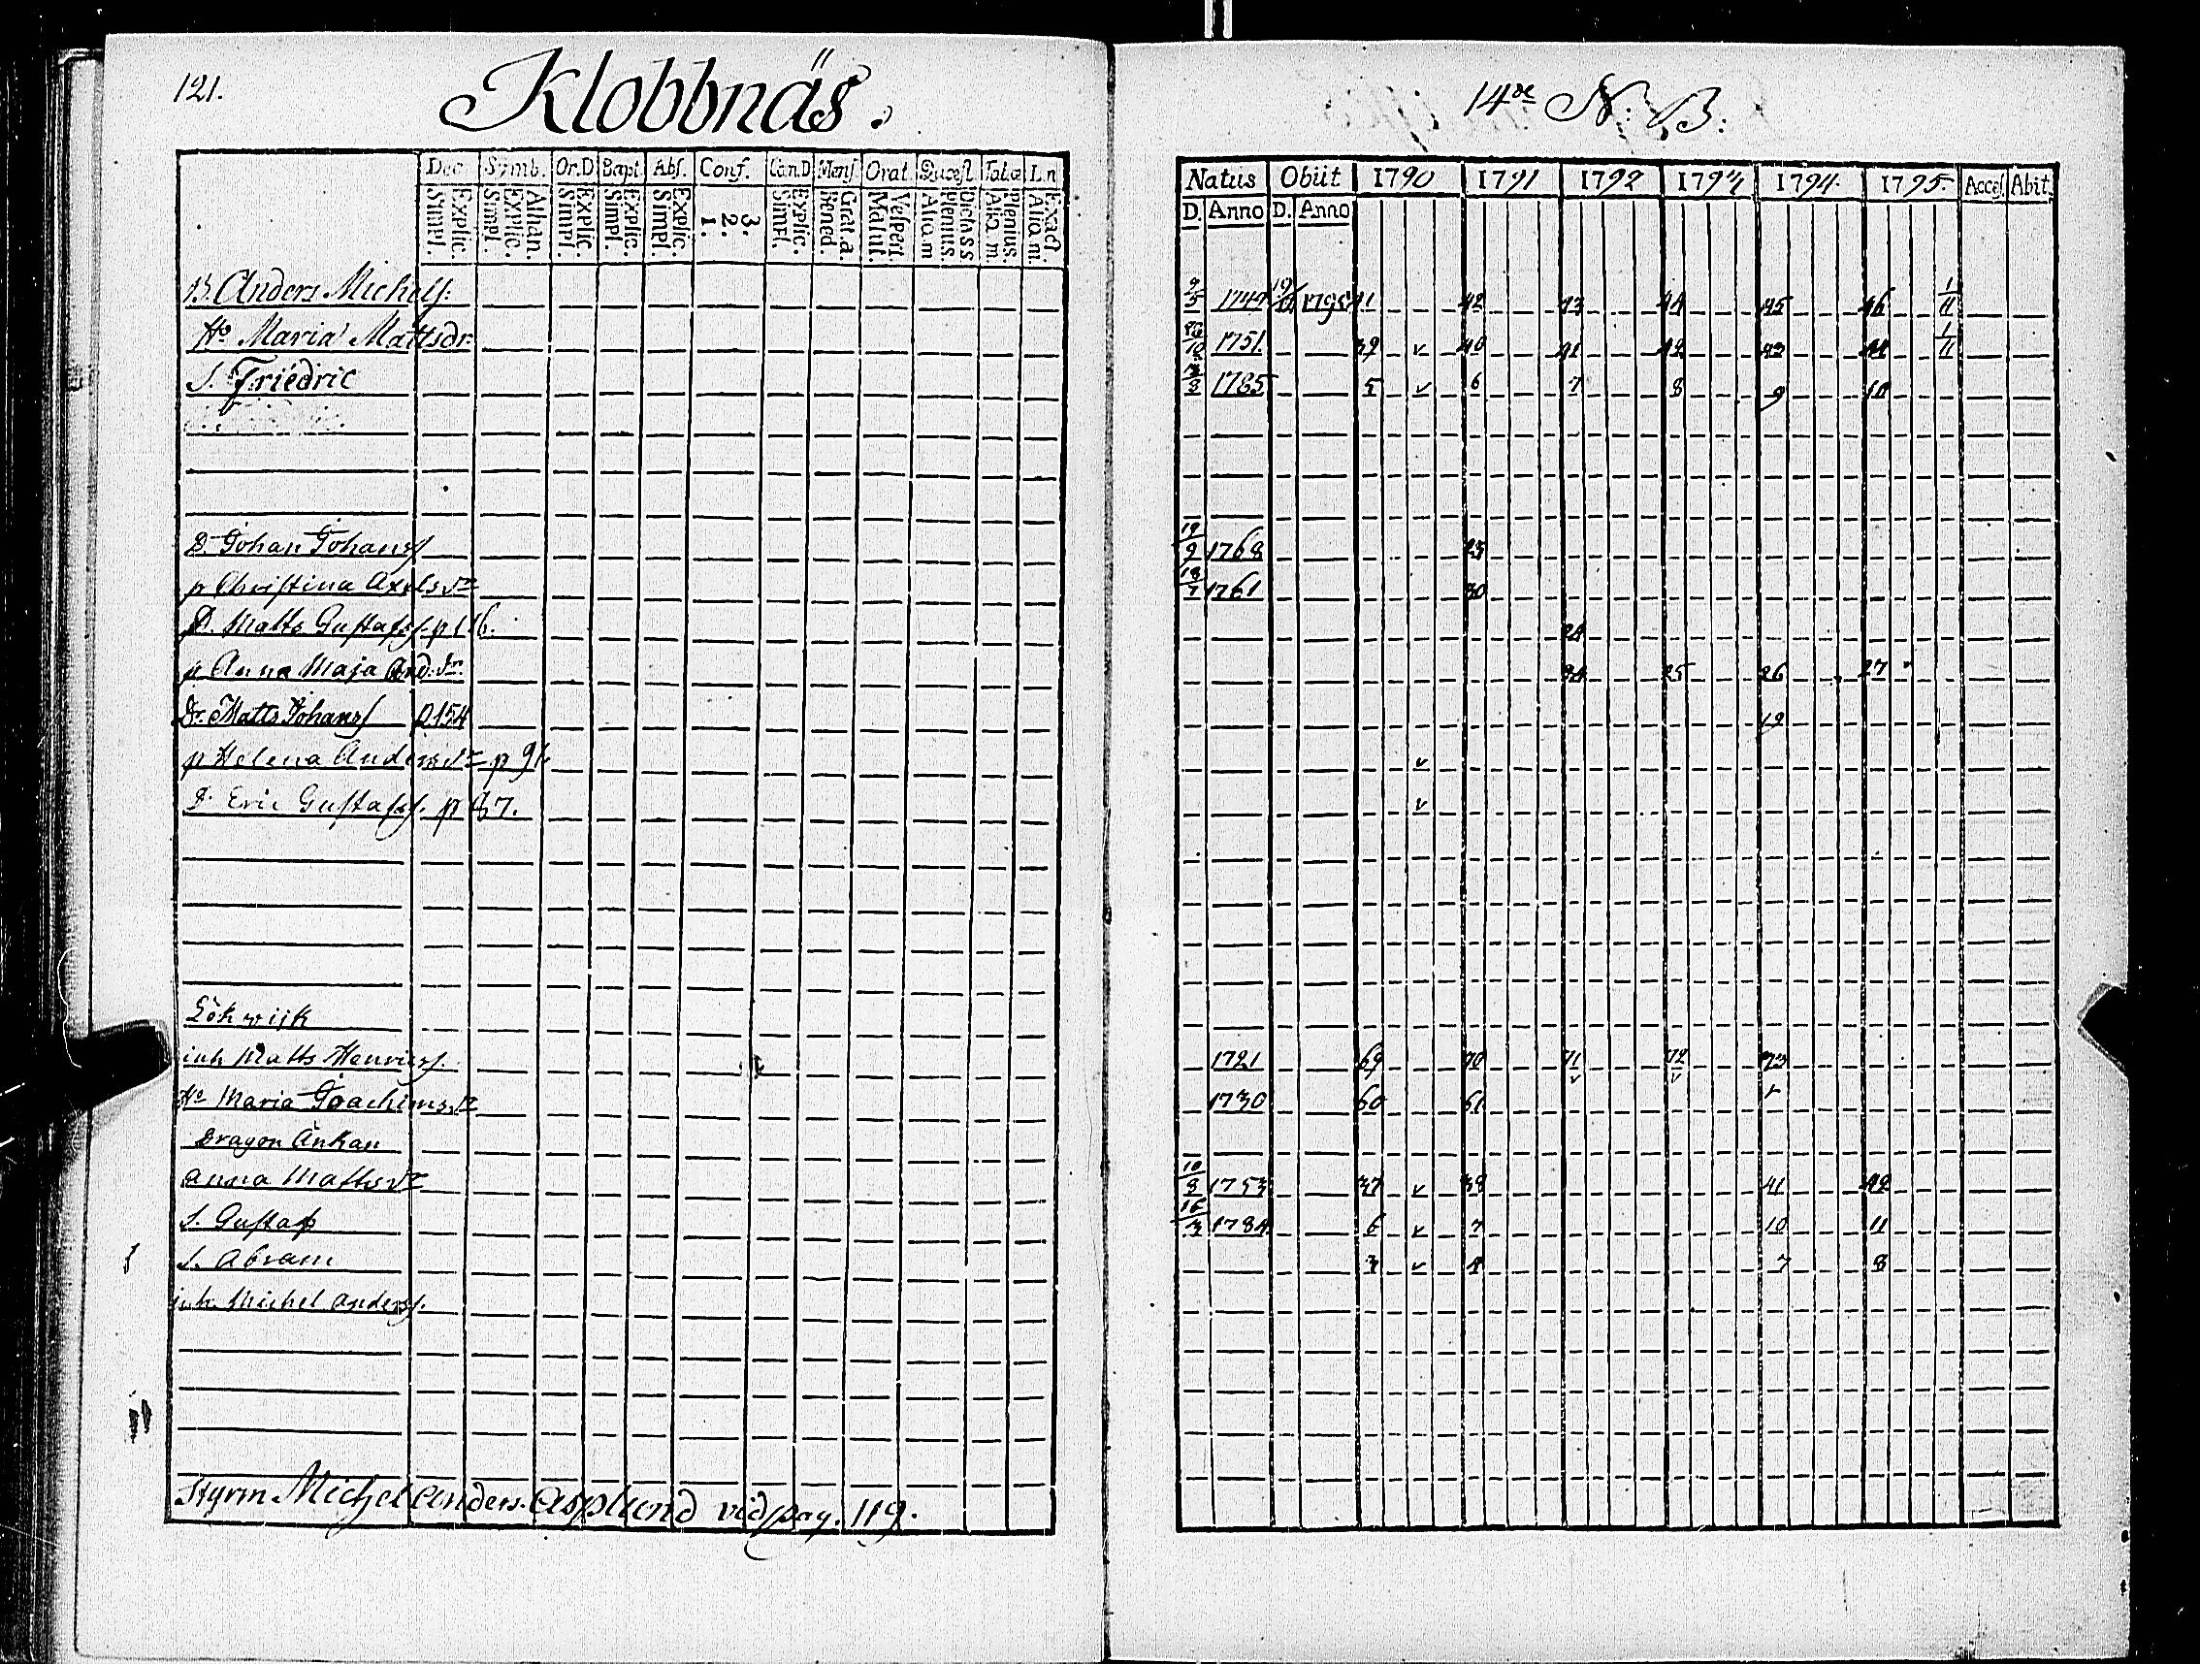 121.
Klobbnäs.
14de N: B:
Dec. Symb. Or.D Bapt. Abs. Conf. Cœn.D Mens. Orat. Quæst. Tab.æ L.n
Simpl. Explic. Simpl. Explic. Athan. Simpl. Explic. Simpl. Explic. Simpl. Explic. 1. 2. 3. Simpl. Explic. Bened. Grat.a. Matut. Vespert. Aliq.m Plenius. Dicta SS Aliq.m. Plenius. Aliq.m. Exact.
Natus Obiit 1790 1791 1792 1793 1794. 1795. Acces. Abit.
D. Anno D. Anno
B. Anders Michelss. 9/5 1749 41 42 43 44 45 46 1/11
Ho Maria Mattsdr 1751. 39 v 40 41 42 43 44 1/11
S. Friedric 1785 5 v 6 7 8 9 10
D. Johan Johanss 19/9 1768 23
p Christina Axelsdr 18/7 1761 30
D. Matts Gustafss. p 116. 24
p Anna Maja And:dr. 24 25 26 27
Dr. Matts Johanss p 154 19
p Helena Andersdr p 91. v
D. Eric Gustafss. p 87. v
Lökwijk
inh Matts Henricss. 1721 69 70 71 v 72 v 73
Ho Maria Joachimsdr 1730 60 61
Dragon Änkan
Anna Mattsdr 10/8 1753 37 v 38 41 42
S. Gustaf 16/3 1784 6 v 7 10 11
S. Abram 3 v 4 7 8
inh. Michel Anderss.
Styrm Michel Anders. Asplund vid pag. 119.